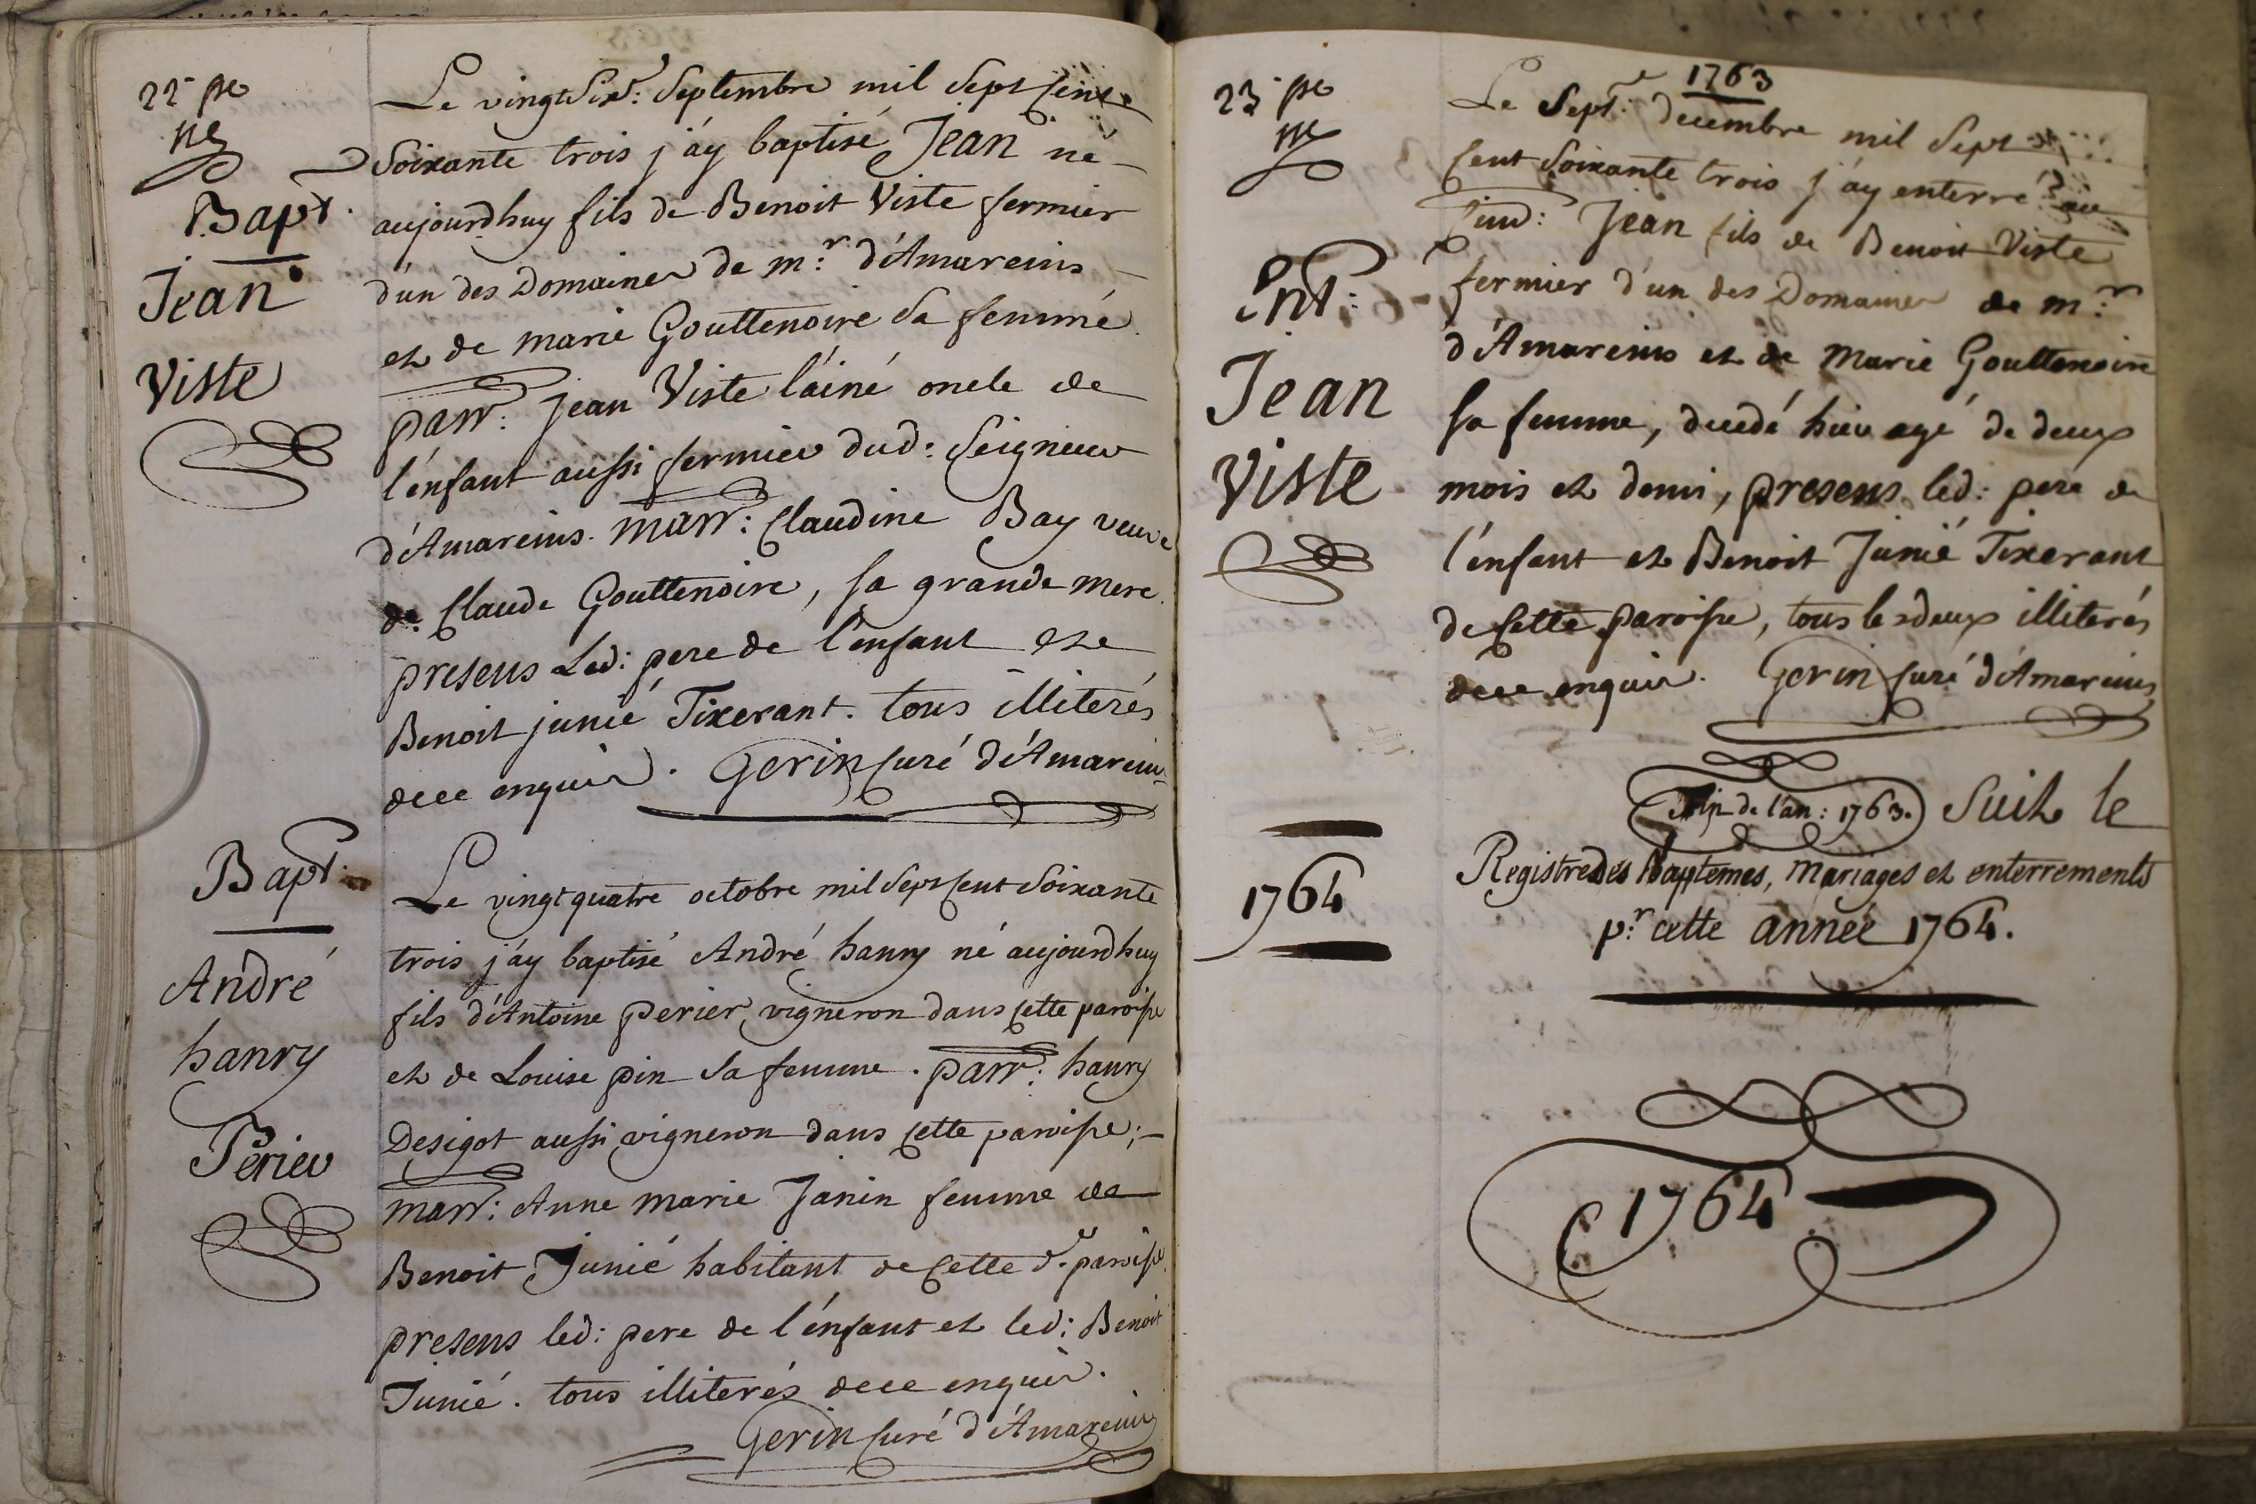 22e pe
Bapt.
Jean
Viste
Le vingt Sixe: Septembre mil Sept Cent
Soixante trois j'áy baptisé Jean né
aujourdhuy fils de Benoit Viste fermier
d'un des Domaines de mr: d'Amareins
et de marie Gouttenoire Sa femme.
parr: Jean Viste l'áiné oncle de
l'énfant aussi fermier dud: Seigneur
d'Amareins. marr: Claudine Bay veuve
de Claude Gouttenoire, sa grande mere.
presens Led: pere de l'enfant et
Benoit junié Tixerant. tous illiterés
de ce enquis. Gerin Curé d'Amareins
Bapt.
André
hanry
Perier
Le vingt quatre octobre mil Sept Cent Soixante
trois j'áy baptisé André hanry né aujourdhuy
fils d'Antoine perier vigneron dans Cette paroisse
et de Louise pin Sa femme. parr: hanry
Desigot aussi vigneron dans Cette paroisse;
marr: Anne marie Janin femme de
Benoit Junié habitant de Cette de. paroisse.
presens led: pere de l'énfant et led: Benoit
Junié. tous illiterés de ce enquis.
Gerin Curé d'Amareins
23e pe
Ent:
Jean
Viste
1763
Le Sept.e decembre mil Sept
Cent Soixante trois j'áy enterré au
Cim: Jean fils de Benoit Viste
fermier d'un des Domaines de mr:
d'Amareins et de Marie Gouttenoire
sa femme, decedé hier agé de deux
mois et demi, presens led: pere de
l'énfant et Benoit Junié Tixerant
de Cette paroisse, tous les deux illiterés
de ce enquis. Gerin Curé d'Amareins
Fin de l'an: 1763. Suit le
1764
Registre des baptemes, Mariages et enterrements
pr. cette année 1764.
1764